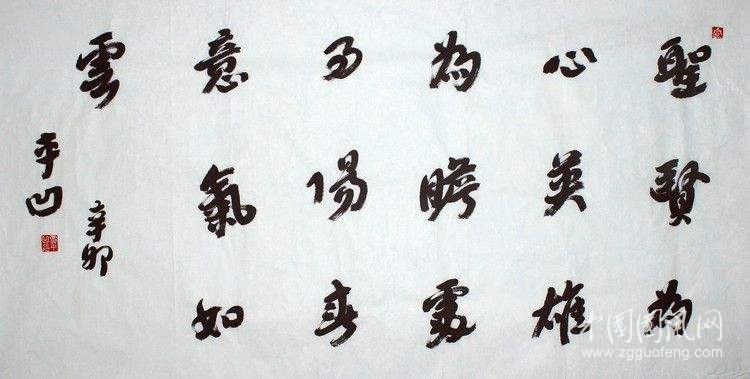 聖賢為
心英雄
為膽處
陽春
意氣如
雲
辛卯
平凹
中国国风网
www.zgguofeng.com